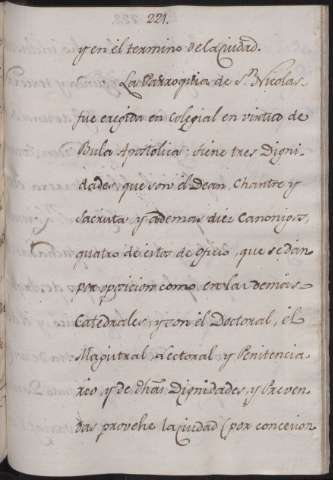 221.
y en el termino de la Ciudad.
La Parroquia de Sn. Nicolas
fue eregida en Colegial en virtud de
Bula Apostolica: tiene tres Digni-
dades, que son el Dean, Chantre y
Sacrista y ademas diez Canonjias,
quatro de estas de oficio, que se dàn
por oposicion como en las demàs
Catedrales, y son el Doctoral, el
Magistral, Lectoral y Penitencia-
rio, y de dhas Dignidades, y Preven-
das provehe la Ciudad (por concesion